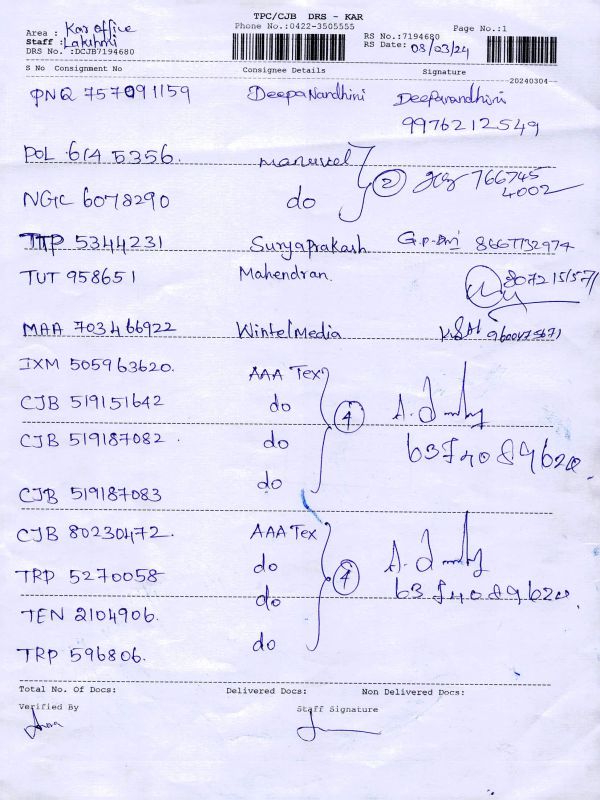 TPC/CJB DRS - KAR
Phone No.:0422-3505555
Page No.:1
Area : Kar office
Staff : Lakshmi
DRS No. :DCJB7194680
RS No.:7194680
RS Date: 08/03/24
S No Consignment No Consignee Details Signature
20240304
PNQ 757091159 Deepa Nandhini Deepanandhini
9976212549
POL 614 5356. Manuvel
② 766745
4002
NGC 6078290 do
TTP 5344231 Suryaprakash 8667732974
TUT 958651 Mahendran.
MAA 703466922 Wintel Media
IXM 505963620. AAA Tex
CJB 519151642 do ④
CJB 519187082 . do
CJB 519187083 do
CJB 80230472. AAA Tex
TRP 5270058 do ④
TEN 2104906. do
TRP 596806. do
Total No. Of Docs: Delivered Docs: Non Delivered Docs:
Verified By Staff Signature